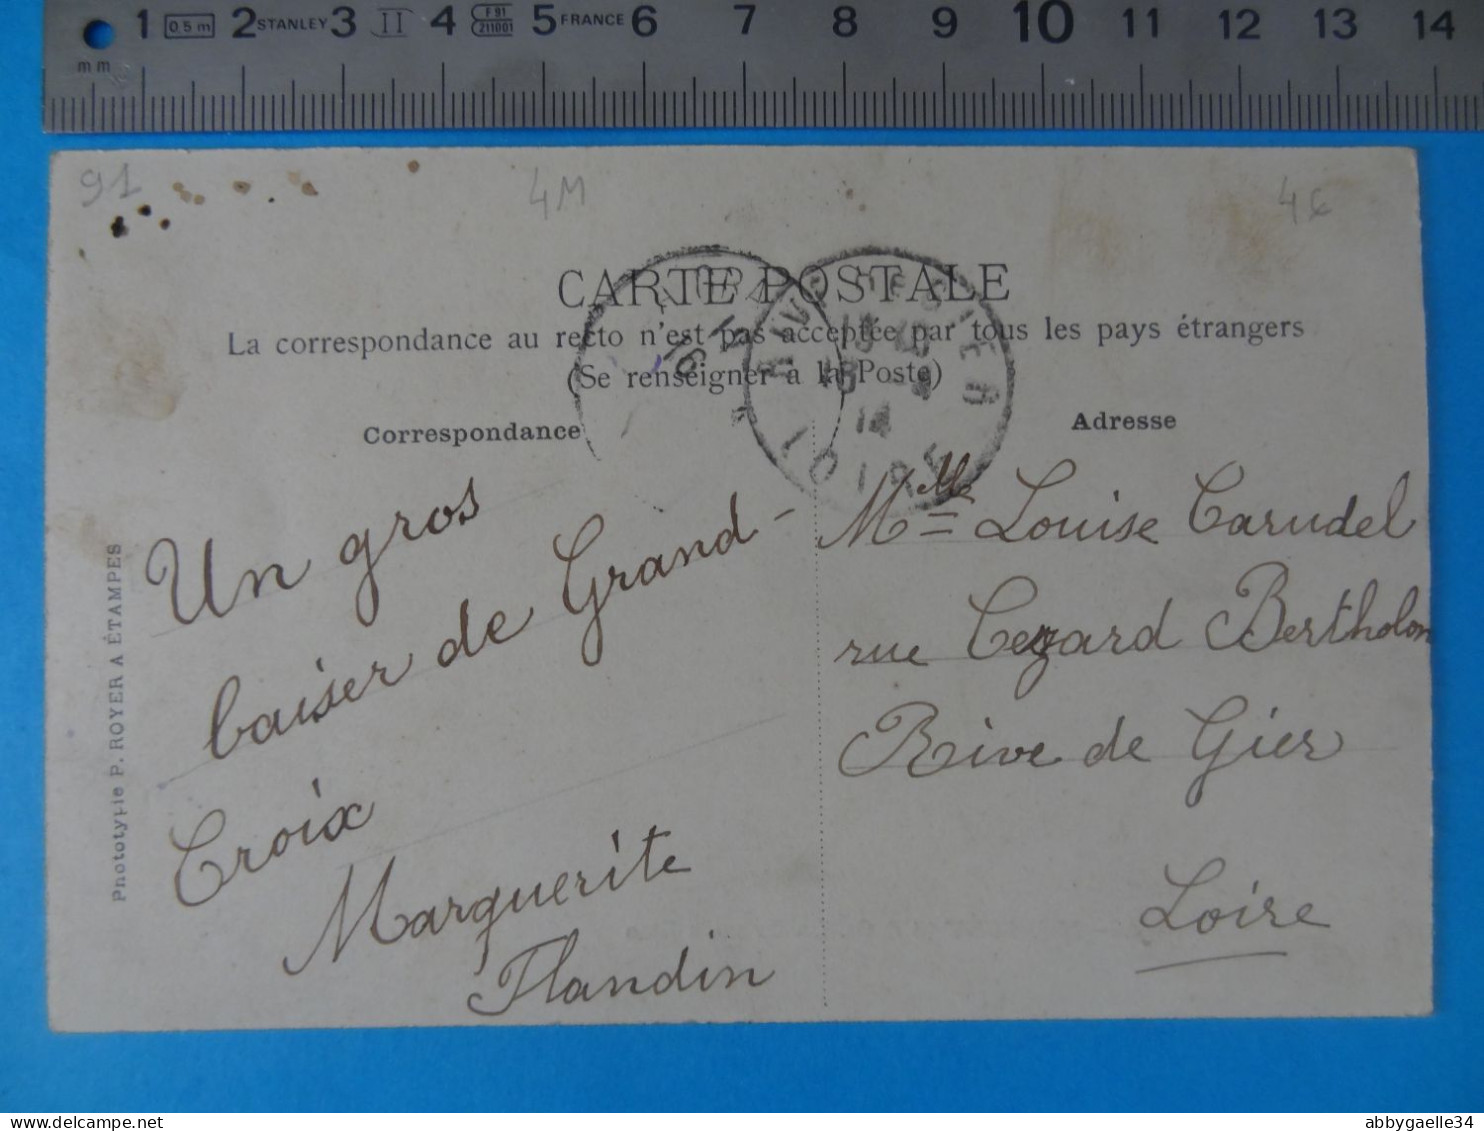 1 0,5 m 2 STANLEY 3 II 4 F 91 211001 5 FRANCE 6 7 8 9 10 11 12 13 14
mm
91 4M 4€
CARTE POSTALE
La correspondance au recto n'est pas acceptée par tous les pays étrangers
(Se renseigner à la Poste)
Correspondance
Adresse
RIVE DE GIER
14
LOIRE
16
Un gros
baiser de Grand-
Croix
Marguerite
Flandin
Mlle Louise Carudel
rue Cezard Bertholon
Rive de Gier
Loire
Phototypie P. ROYER A ÉTAMPES
abbygaelle34